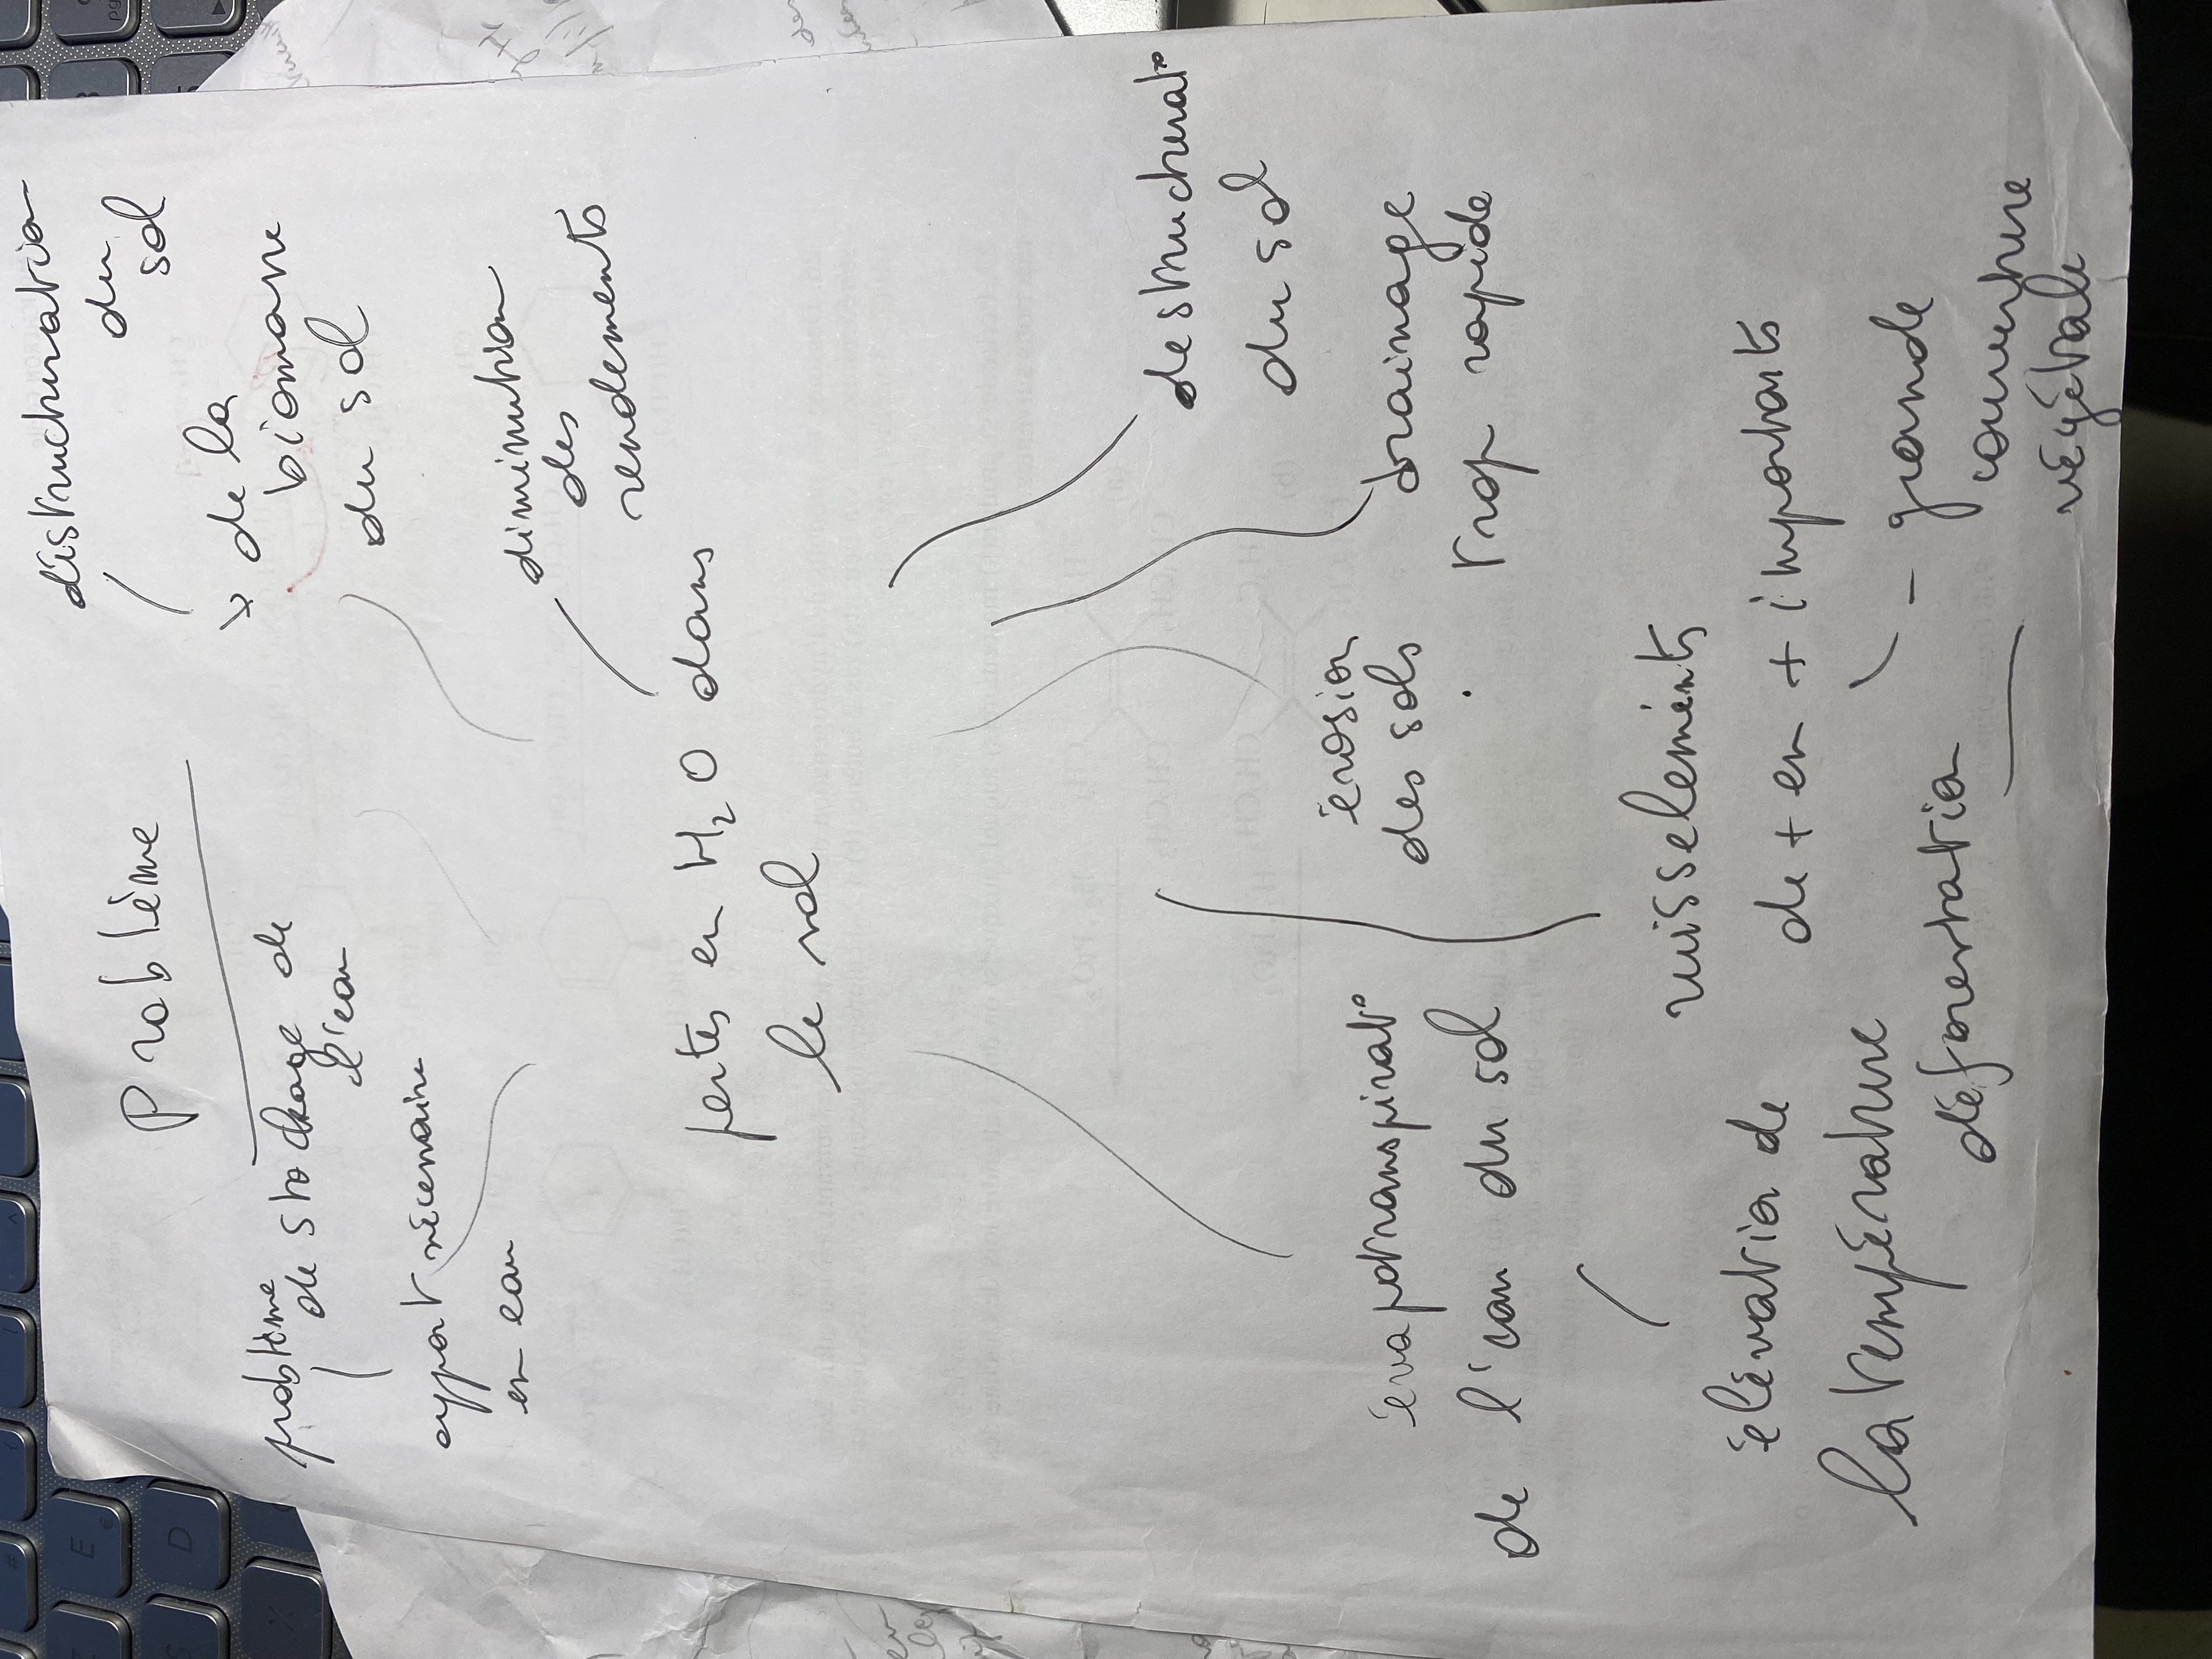 Problème
déstructuration
du
sol
problème
de stockage de
l'eau
↘ de la
biomasse
du sol
apport nécessaire
en eau
diminution
des
rendements
pertes en H2O dans
le sol
destructurat°
du sol
érosion
des sols
drainage
trop rapide
évapotranspirat°
de l'eau du sol
ruissellements
de + en + importants
élévation de
la température
déforestation
- grande
couverture
végétale